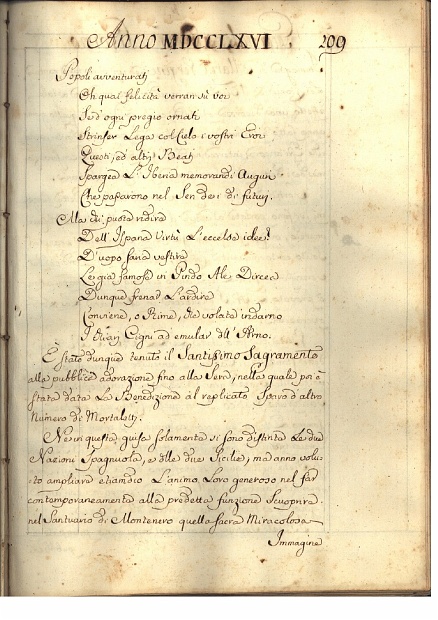 Anno MDCCLXVI 209
Popoli avventurati
Oh qual felicità verran sù voi
Se d'ogni pregio ornati
Strinser Lega col Cielo i vostri Eroi
Questi, ed altri Beati
Spargea L'Iberia memorandi Augurj
Che passarono nel Sen de i di futuri.
Ma chi può ridire
Dell'Ispana Virtù L'eccelse idee?
D'uopo saria vestire
Le già famose in Pindo Ale Dircee
Dunque frenar L'ardire
Conviene, o Rime, che volate indarno
I Cigni ad emular dell'Arno.
È stato dunque tenuto il Santissimo Sagramento
alla pubblica adorazione fino alla Sera, nella quale poi è
stata data La Benedizione al replicato Sparo d'altro
Numero di Mortaletti.
Ne in questa guisa solamente si sono distinte Le due
Nazioni Spagnuola, e delle due Sicilie, ma anno volu-
to ampliare etiamdio L'animo Loro generoso nel far
contemporaneamente alla predetta funzione Scuoprire
nel Santuario di Montenero quella Sacra Miracolosa
Immagine